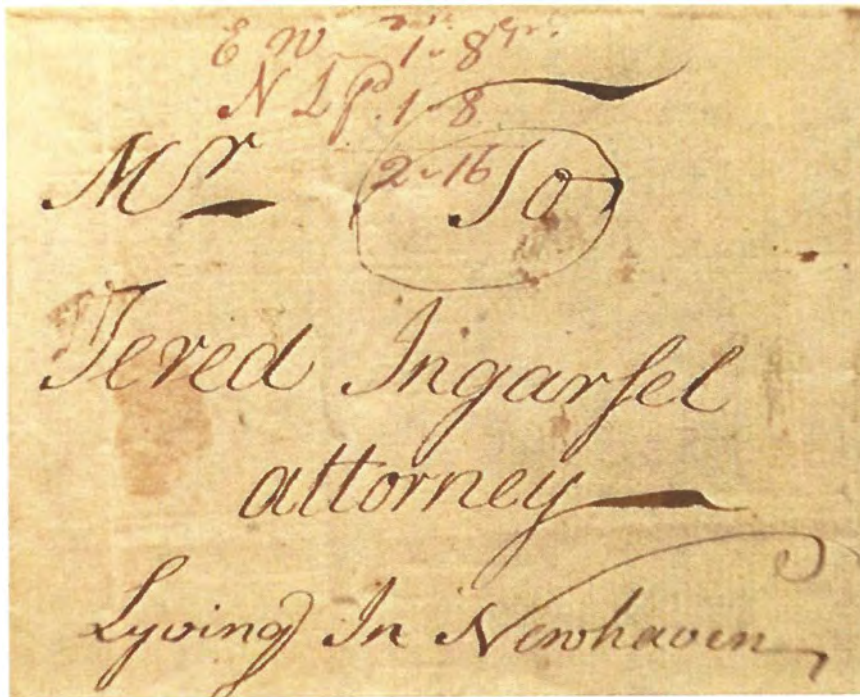 E W 1 - 8
N L P. 1 - 8
2 - 16
Mr To
Jered Ingarsel
attorney
Lyving In Newhaven